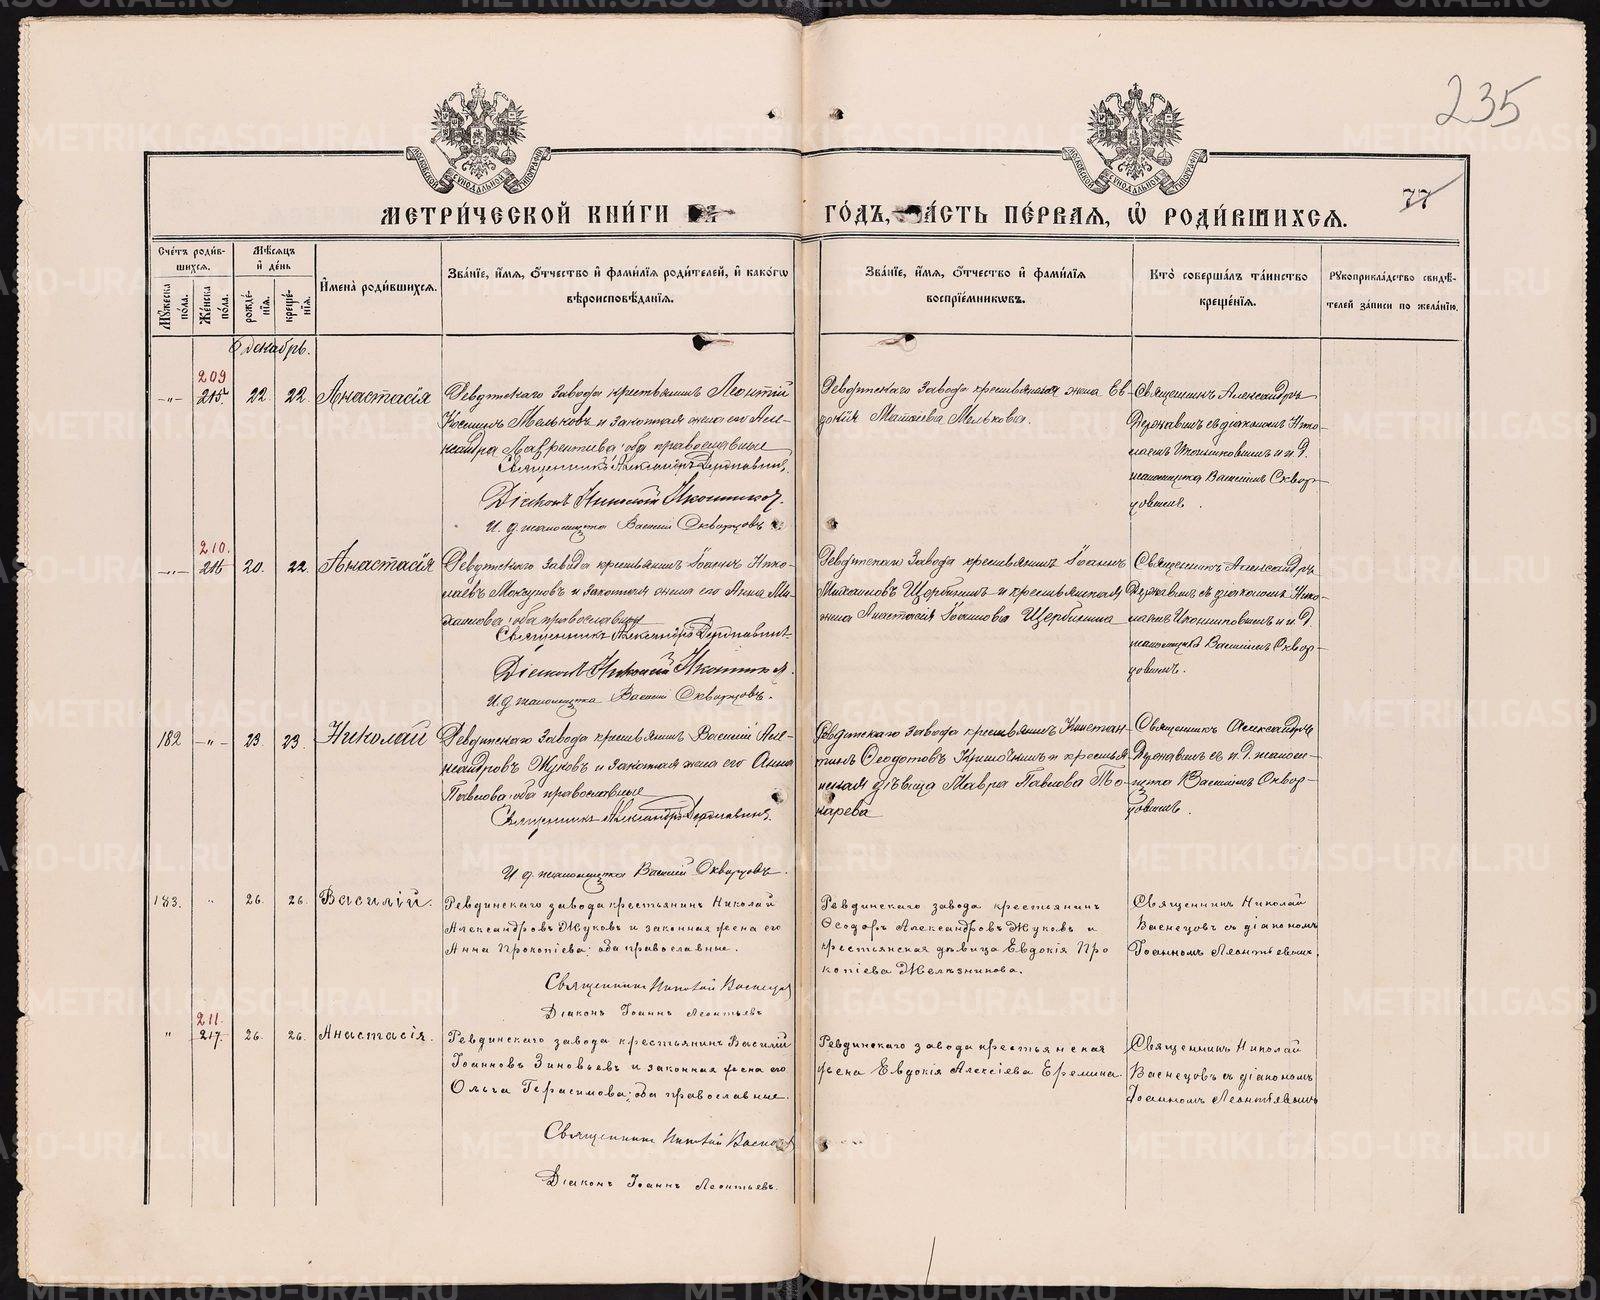 235
77
МЕТРИ́ЧЕСКОЙ КНИ́ГИ
ГО́ДЪ, ЧА́СТЬ ПЕ́РВАЯ, Ѽ РОДИ́ВШИХСЯ.
МОСКОВСКОЙ СѴНОДАЛЬНОЙ ТИПОГРАФІИ
МОСКОВСКОЙ СѴНОДАЛЬНОЙ ТИПОГРАФІИ
Сче́тъ роди́в-
шихся.
Мꙋ́жеска по́ла.
Же́нска по́ла.
Мѣ́сяцъ
и҆ де́нь
рожде́-
нїѧ.
креще́-
нїѧ.
И҆мена̀ роди́вшихся.
Зва́нїе, и҆́мя, ѻ҆́тчество и҆ фами́лїя роди́телей, и҆ како́гѡ
вѣроисповѣ́данїя.
Зва́нїе, и҆́мя, ѻ҆́тчество и҆ фами́лїя
воспрїе́мникѡвъ.
Кто̀ соверша́лъ та́инство
креще́нїя.
Рꙋкоприкла́дство свидѣ́-
телей за́писи по жела́нїю.
Декабрь.
209
-„- 215 22 22 Анастасія
Ревдинскаго Завода крестьянинъ Леонтій
Косминъ Мельковъ и законная жена его Алек-
сандра Лаврентіева, оба православные
Священникъ Александръ Державинъ
Діаконъ Николай Иконниковъ.
И. д. псаломщика Василій Скварцовъ
Ревдинскаго Завода крестьянская жена Ев-
докія Матѳіева Мелькова.
Священникъ Александръ
Державинъ съ діакономъ Нико-
лаемъ Иконниковымъ и и. д.
псаломщика Василіемъ Сквар-
цовымъ.
210.
-„- 216 20. 22. Анастасія
Ревдинскаго Завода крестьянинъ Іоаннъ Нико-
лаевъ Мокгуновъ и законная жена его Анна Ми-
хаилова, оба православные
Священникъ Александръ Державинъ
Діаконъ Николай Иконниковъ.
И. д. псаломщика Василій Скварцовъ.
Ревдинскаго Завода крестьянинъ Іоаннъ
Михаиловъ Щербининъ и крестьянская
жена Анастасія Іоаннова Щербинина
Священникъ Александръ
Державинъ съ діакономъ Нико-
лаемъ Иконниковымъ и и. д.
псаломщика Василіемъ Сквар-
цовымъ.
182 -„- 23. 23. Николай
Ревдинскаго Завода крестьянинъ Василій Алек-
сандровъ Жуковъ и законная жена его Анна
Павлова, оба православные
Священникъ Александръ Державинъ.
И. д. псаломщика Василій Скварцовъ.
Ревдинскаго Завода крестьянинъ Констан-
тинъ Ѳеодотовъ и крестья
нская дѣвица Мавра Павлова То-
карева
Священникъ Александръ
Державинъ съ и. д. псалом-
щика Василіемъ Сквар-
цовымъ.
183. „ 26. 26. Василій.
Ревдинскаго завода крестьянинъ Николай
Александровъ Жуковъ и законная жена его
Анна Прокопіева; оба православные.
Священникъ Николай Васнецовъ
Діаконъ Іоаннъ Леонтьевъ
Ревдинскаго завода крестьянинъ
Ѳеодоръ Александровъ Жуковъ и
крестьянская дѣвица Евдокія Про
копіева Желѣзникова.
Священникъ Николай
Васнецовъ съ діакономъ
Іоанномъ Леонтьевымъ.
211.
„ 217. 26. 26. Анастасія.
Ревдинскаго завода крестьянинъ Василій
Іоанновъ Зиновьевъ и законная жена его
Ольга Герасимова; оба православные.
Священникъ Николай Васнецовъ
Діаконъ Іоаннъ Леонтьевъ.
Ревдинскаго завода крестьянская
жена Евдокія Алексіева Еремина.
Священникъ Николай
Васнецовъ съ діакономъ
Іоанномъ Леонтьевымъ
METRIKI.GASO-URAL.RU